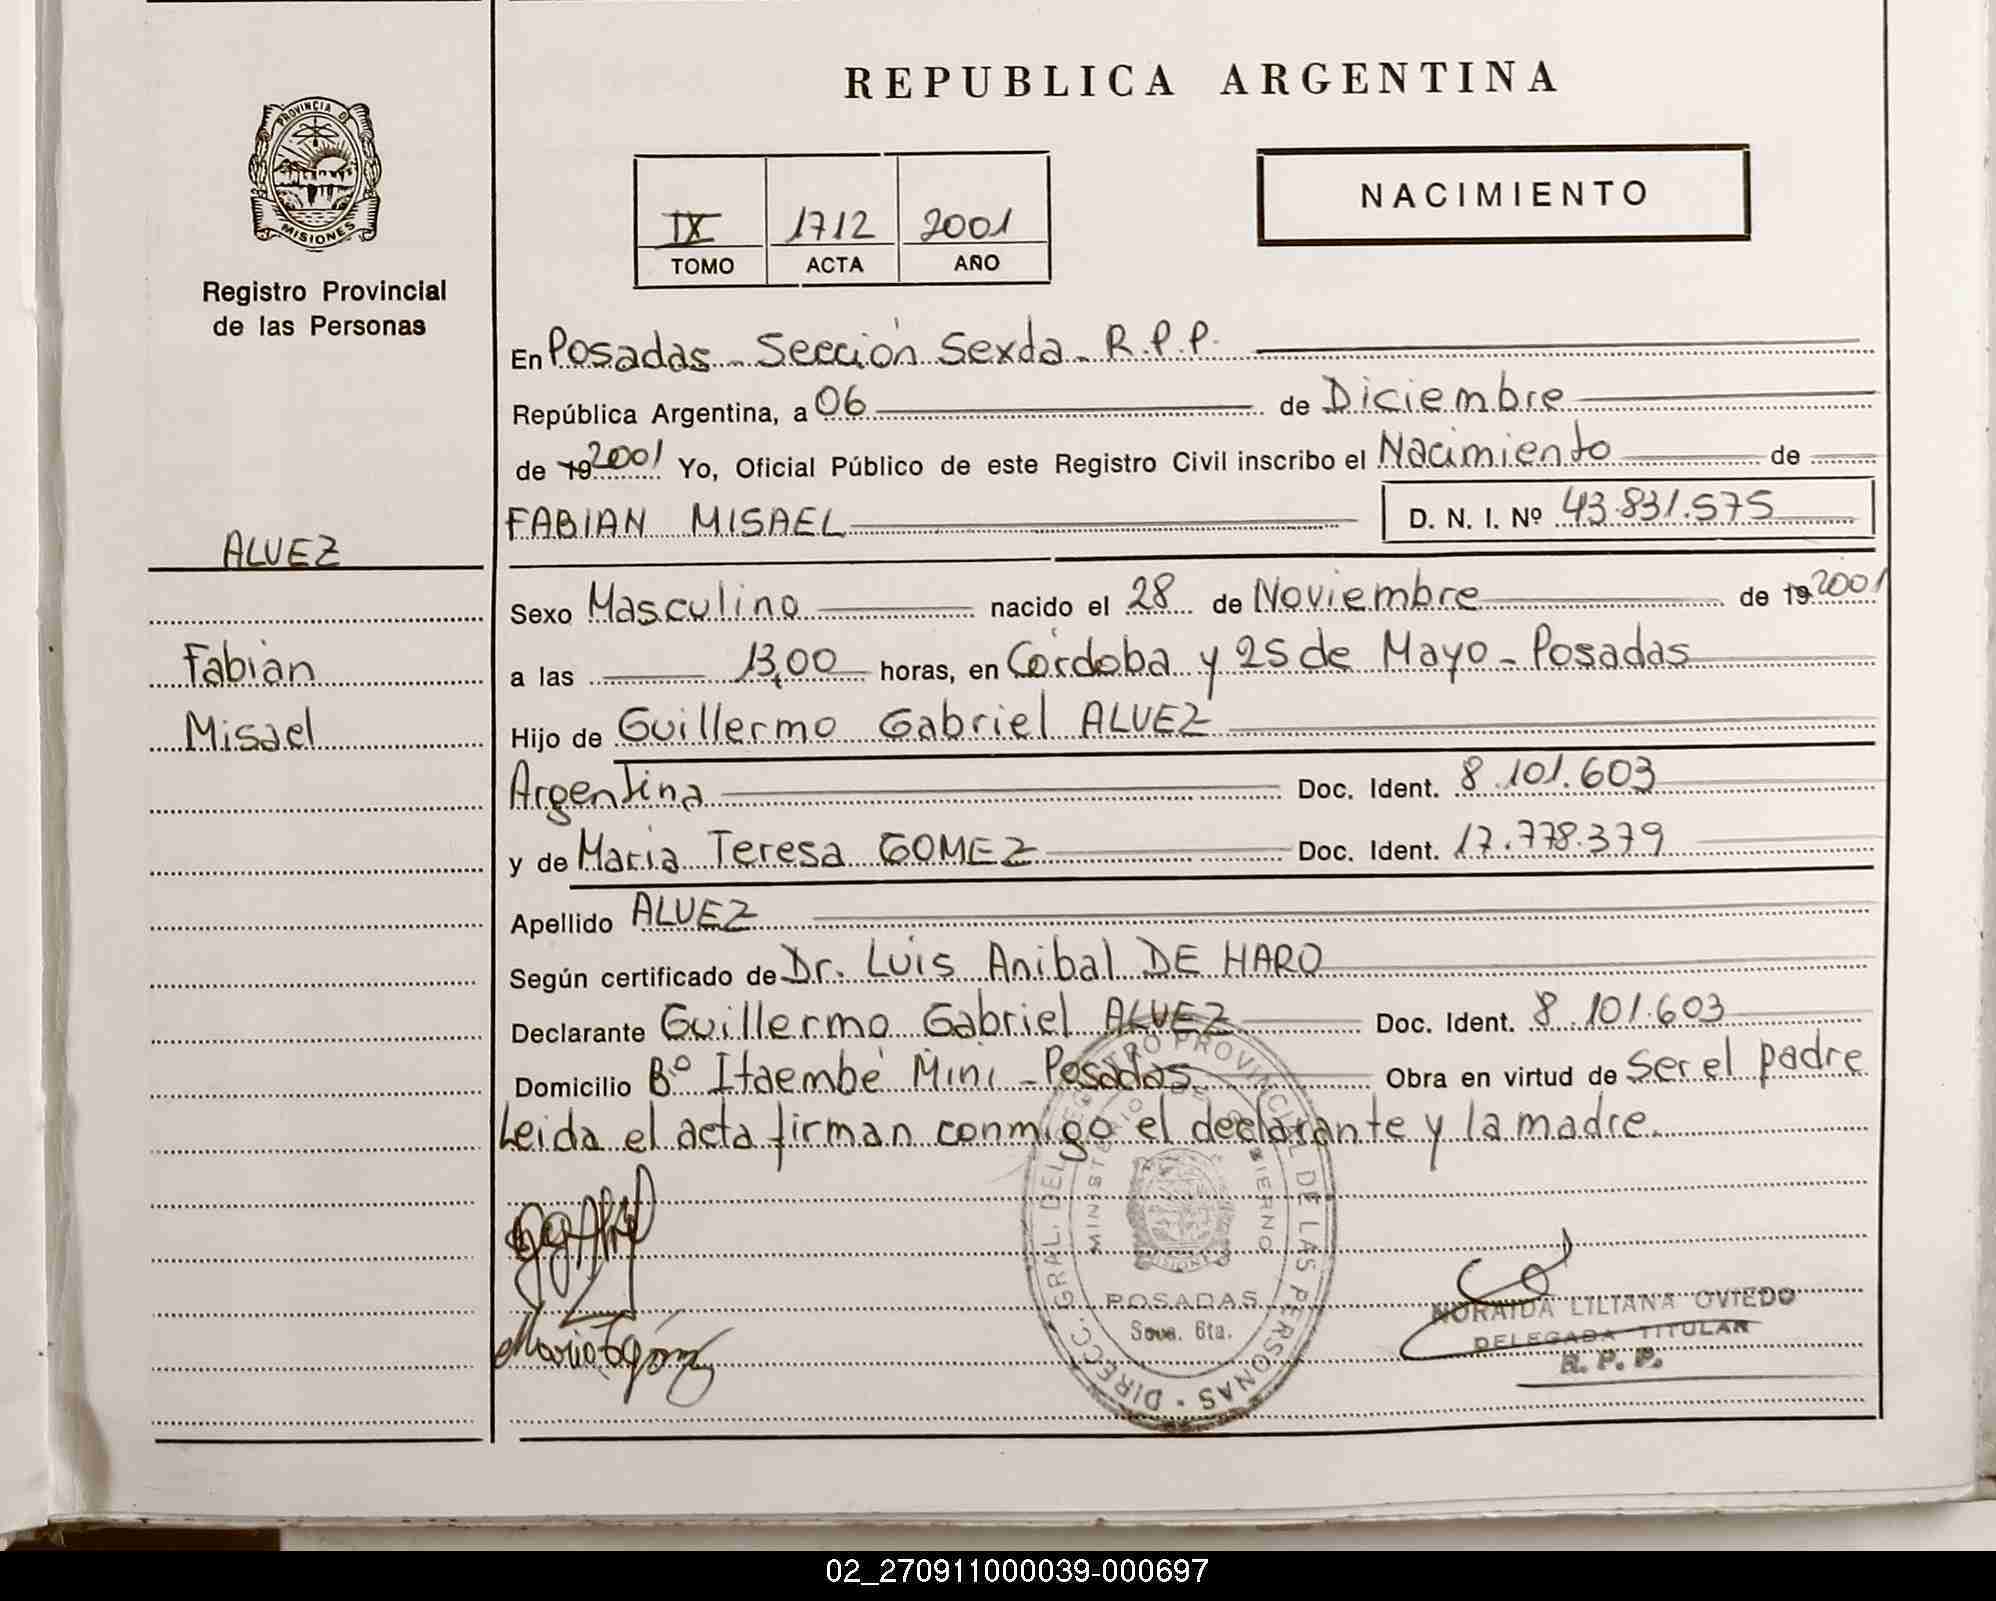 REPUBLICA ARGENTINA
PROVINCIA DE
MISIONES
Registro Provincial
de las Personas
IX 1712 2001
TOMO ACTA AÑO
NACIMIENTO
En Posadas - Sección Sexda - R.P.P.
República Argentina, a 06 de Diciembre
de 19 2001 Yo, Oficial Público de este Registro Civil inscribo el Nacimiento de
FABIAN MISAEL D. N. I. Nº 43.831.575
ALVEZ
Fabian
Misael
Sexo Masculino nacido el 28 de Noviembre de 19 2001
a las 13,00 horas, en Córdoba y 25 de Mayo - Posadas
Hijo de Guillermo Gabriel ALVEZ
Argentina Doc. Ident. 8.101.603
y de Maria Teresa GOMEZ Doc. Ident. 17.778.379
Apellido ALVEZ
Según certificado de Dr. Luis Anibal DE HARO
Declarante Guillermo Gabriel ALVEZ Doc. Ident. 8.101.603
Domicilio Bº Itaembé Mini - Posadas Obra en virtud de Ser el padre
Leida el acta firman conmigo el declarante y la madre.
DIRECC. GRAL. DEL REGISTRO PROVINCIAL DE LAS PERSONAS
MINISTERIO DE GOBIERNO
MISIONES
POSADAS
Secc. 6ta.
NORAIDA LILIANA OVIEDO
DELEGADA TITULAR
R. P. P.
02_270911000039-000697